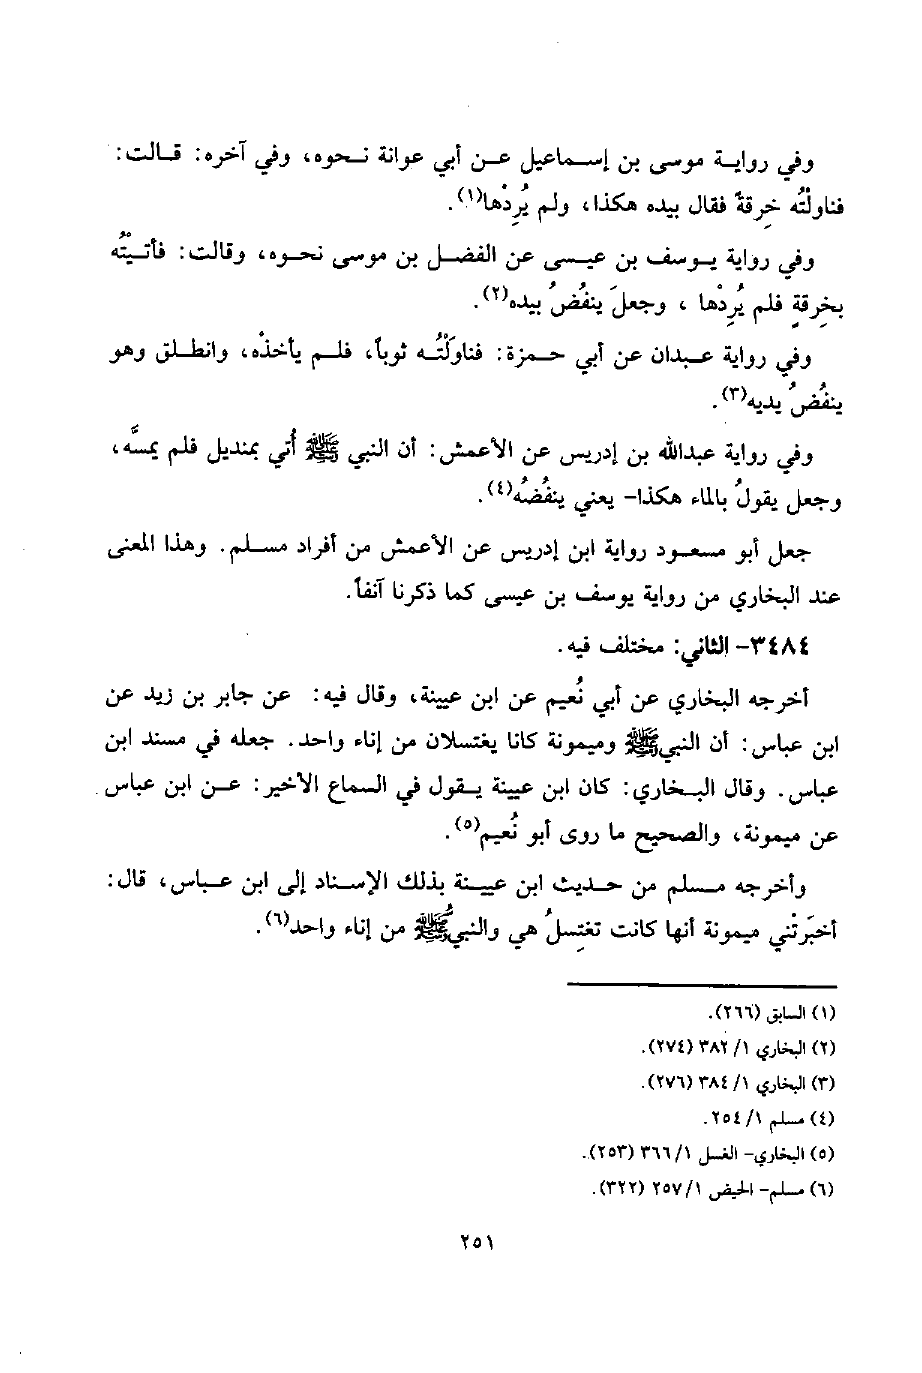 وفي رواية موسى بن إسماعيل عن أبي عوانة نحوه، وفي آخره: قالت:
فناولْتُه خِرقةً فقال بيده هكذا، ولم يُرِدْها(١).
وفي رواية يوسف بن عيسى عن الفضل بن موسى نحوه، وقالت: فأتيْتُه
بخِرقةٍ فلم يُرِدْها ، وجعلَ ينفُضُ بيده(٢).
وفي رواية عبدان عن أبي حمزة: فناوَلْتُه ثوباً، فلم يأخذْه، وانطلق وهو
ينفُضُ يديه(٣).
وفي رواية عبدالله بن إدريس عن الأعمش: أن النبي ﷺ أُتي بمنديل فلم يمسَّه،
وجعل يقولُ بالماء هكذا- يعني ينفُضُه(٤).
جعل أبو مسعود رواية ابن إدريس عن الأعمش من أفراد مسلم. وهذا المعنى
عند البخاري من رواية يوسف بن عيسى كما ذكرنا آنفاً.
٣٤٨٤- الثاني: مختلف فيه.
أخرجه البخاري عن أبي نُعيم عن ابن عيينة، وقال فيه: عن جابر بن زيد عن
ابن عباس: أن النبيﷺ وميمونة كانا يغتسلان من إناء واحد. جعله في مسند ابن
عباس. وقال البخاري: كان ابن عيينة يقول في السماع الأخير: عن ابن عباس
عن ميمونة، والصحيح ما روى أبو نُعيم(٥).
وأخرجه مسلم من حديث ابن عيينة بذلك الإسناد إلى ابن عباس، قال:
أخبَرتْني ميمونة أنها كانت تغتسِلُ هي والنبيُّﷺ من إناء واحد(٦).
(١) السابق (٢٦٦).
(٢) البخاري ١/ ٣٨٢ (٢٧٤).
(٣) البخاري ١/ ٣٨٤ (٢٧٦).
(٤) مسلم ١/ ٢٥٤.
(٥) البخاري- الغسل ١/ ٣٦٦ (٢٥٣).
(٦) مسلم- الحيض ١/ ٢٥٧ (٣٢٢).
٢٥١